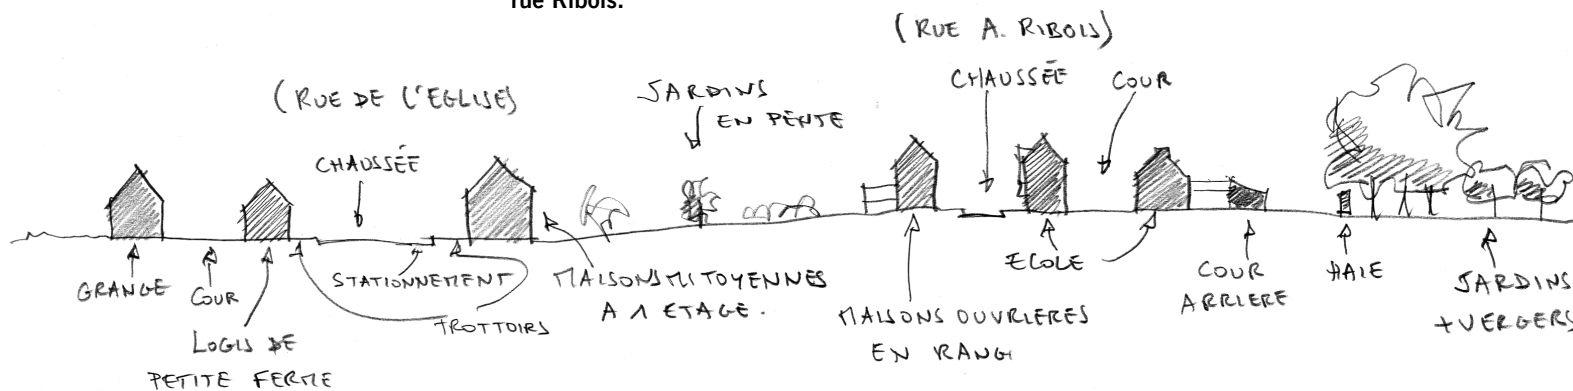 rue Ribois.
(RUE A. RIBOIS)
(RUE DE L'EGLISE)
JARDINS
EN PENTE
CHAUSSÉE
COUR
CHAUSSÉE
GRANGE
COUR
LOGIS DE
PETITE FERME
STATIONNEMENT
TROTTOIRS
MAISONS MITOYENNES
A 1 ETAGE.
MAISONS OUVRIERES
EN RANG
ECOLE
COUR
ARRIERE
HAIE
JARDINS
+VERGERS